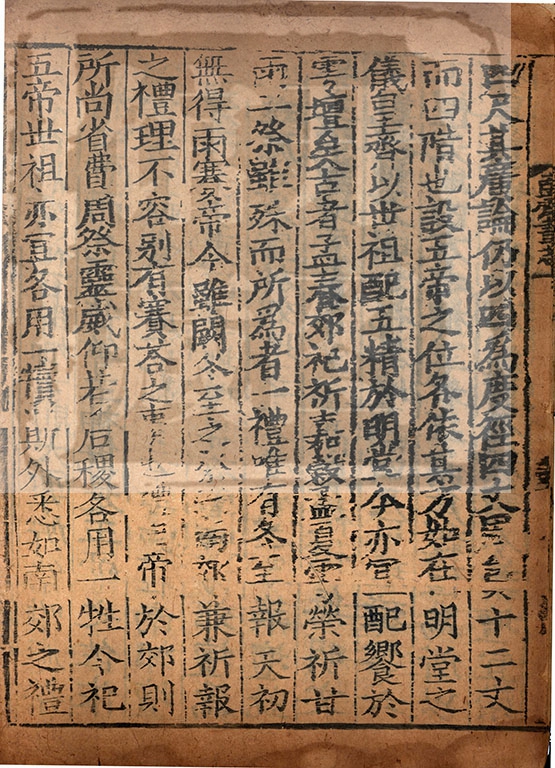 四尺其廣論仍以四爲度徑四丈周 十二丈
而四階也設五帝之位各依其方如在明堂之
儀皇齊以世祖配五精於明堂今亦宜配饗於
雩壇矣古者孟春郊祀祈嘉穀孟夏雩禜祈甘
雨二祭雖殊而所爲者一禮唯有冬至報天初
無得雨賽帝今雖闕冬至之 南郊兼祈報
之禮理不容别有賽荅之事 帝於郊則
所尚省費周祭靈威仰若后稷各用一牲今祀
五帝世祖亦宜各用一犢斯外悉如南郊之禮